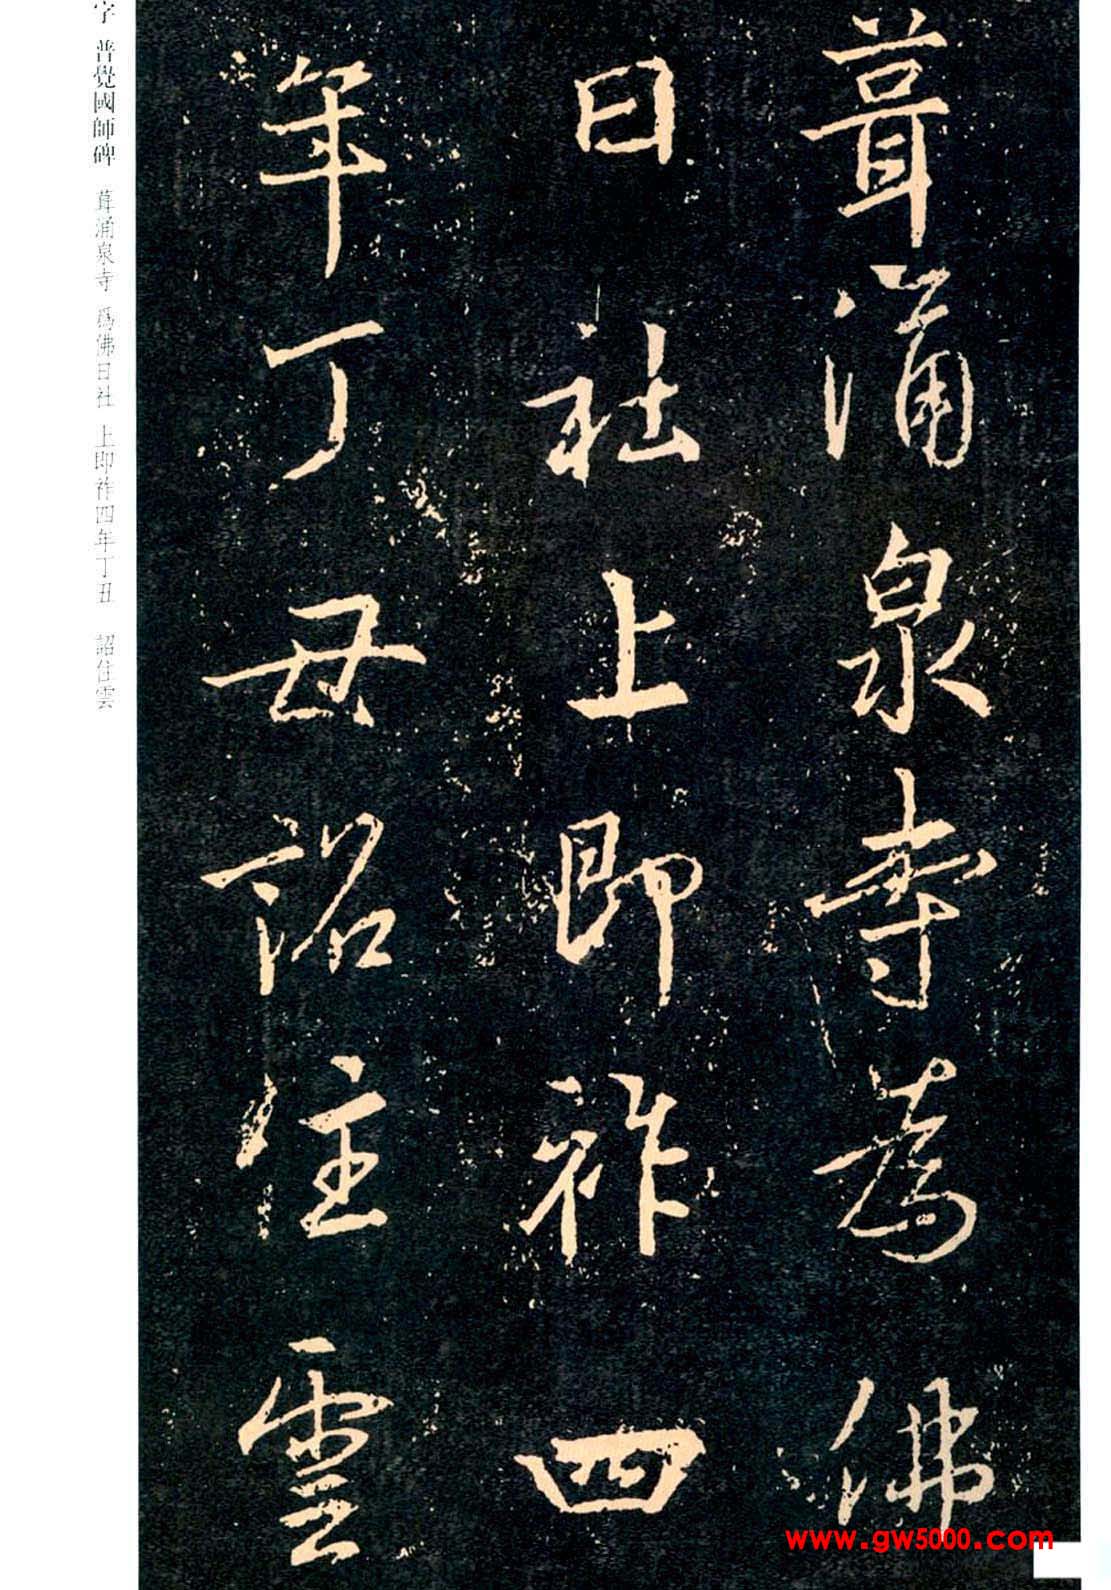 葺涌泉寺爲佛
日社上即祚四
年丁丑詔住雲
字 普覺國師碑 葺涌泉寺 爲佛日社 上即祚四年丁丑 詔住雲
www.gw5000.com